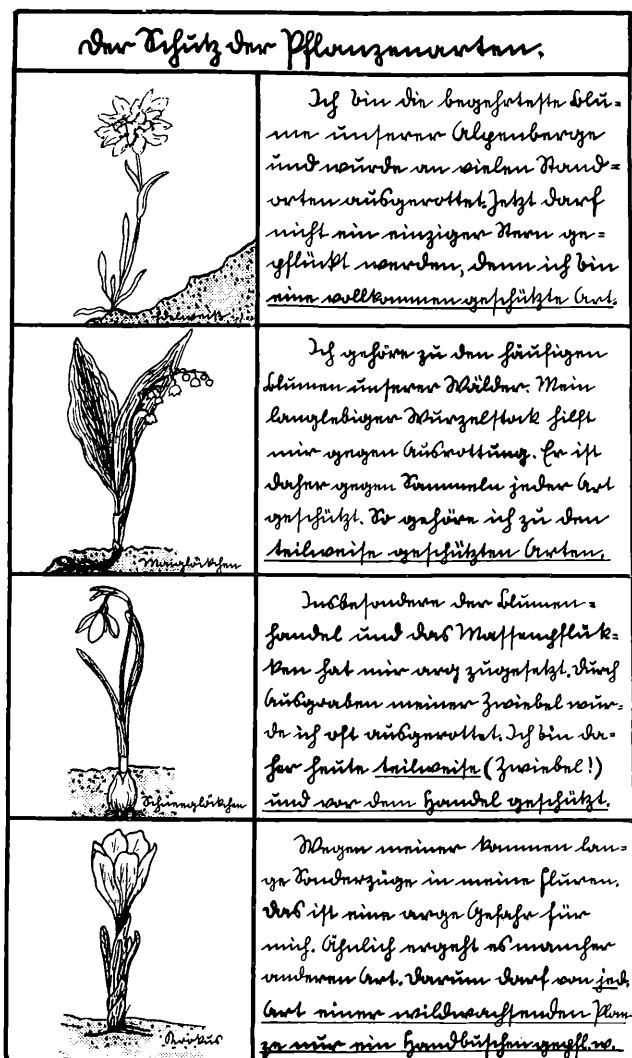 Der Schutz der Pflanzenarten.
Ich bin die begehrteste Blu=
me unserer Alpenberge
und wurde an vielen Stand=
orten ausgerottet. Jetzt darf
nicht ein einziger Stern ge=
pflückt werden, denn ich bin
eine vollkommen geschützte Art.
Edelweiß
Ich gehöre zu den häufigen
Blumen unserer Wälder. Mein
langlebiger Wurzelstock hilft
mir gegen Ausrottung. Er ist
daher gegen Sammeln jeder Art
geschützt. So gehöre ich zu den
teilweise geschützten Arten.
Maiglöckchen
Insbesondere der Blumen=
handel und das Massenpflük=
ken hat mir arg zugesetzt. Durch
Ausgraben meiner Zwiebel wur=
de ich oft ausgerottet. Ich bin da=
her heute teilweise (Zwiebel!)
und vor dem Handel geschützt.
Schneeglöckchen
Wegen meiner kommen lan=
ge Sonderzüge in meine Fluren.
Das ist eine arge Gefahr für
mich. Ähnlich ergeht es mancher
anderen Art. Darum darf von jed.
Art einer wildwachsenden Pflan
ze nur ein Handbuschen gepfl. w.
Krokus